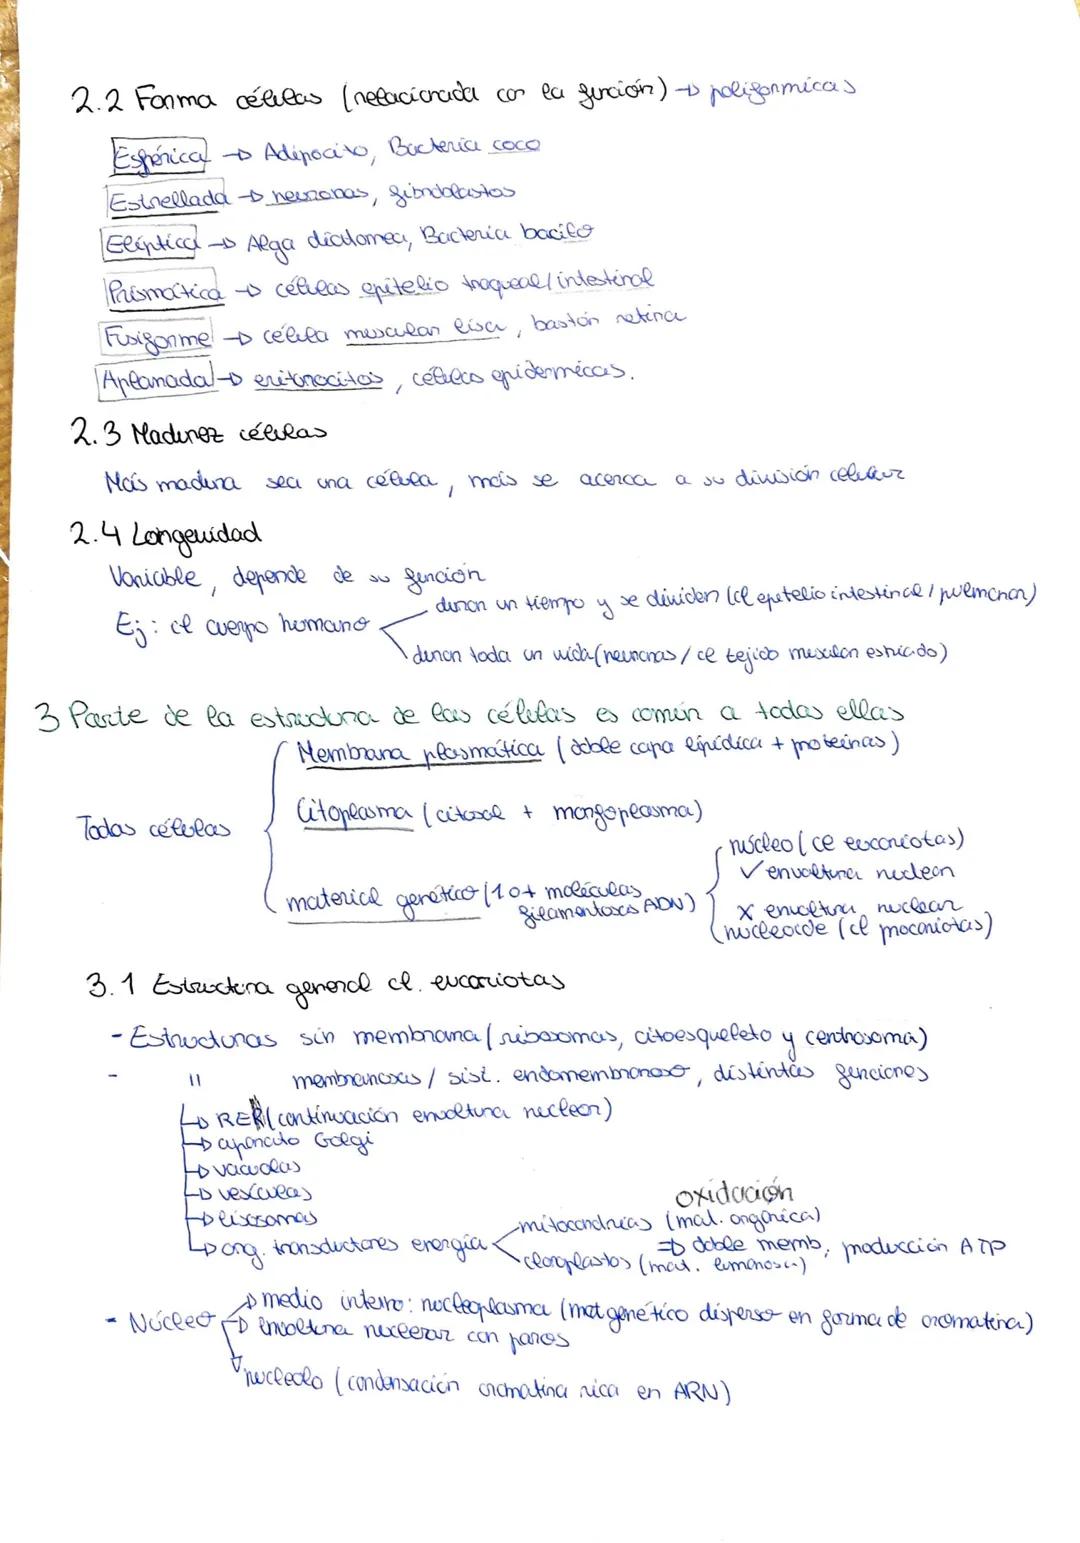 2.2 Forma células (relacionada con la función) → poliformicas
Esférica → Adipocito, Bacteria coco
Estrellada → neuronas, fibroblastos
Elíptica → Alga diatomea, Bacteria bacilo
Prismática → células epitelio traqueal/intestinal
Fusiforme → célula muscular lisa, bastón retina
Aplamada → eritrocitos, células epidermicas.
2.3 Madurez células
Más madura sea una célula, más se acerca a su división celular
2.4 Longevidad
Variable, depende de su función
Ej: el cuerpo humano
duran un tiempo y se dividen (cl epitelio intestinal / pulmonar)
duran toda un vida (neuronas / ce tejido muscular estriado)
3 Parte de la estructura de las células es común a todas ellas
Todas células
Membrana plasmática (doble capa lipídica + proteinas)
Citoplasma (citosol + morfoplasma)
material genético (1 o + moléculas filamentosas ADN)
núcleo (ce eucariotas)
✓ envoltura nuclear
x envoltura nuclear
nucleoide (cl procariotas)
3.1 Estructura general cl. eucariotas
- Estructuras sin membrana (ribosomas, citoesqueleto y centrosoma)
- " membranosas / sist. endomembranoso, distintas funciones
↳ RER (continuación envoltura nuclear)
↳ aparato Golgi
↳ vacuolas
↳ vesículas
↳ lisosomas
↳ org. transductores energía
oxidación
mitocondrias (mat. orgánica)
⇒ doble memb, producción ATP
cloroplastos (mat. luminosa)
- Núcleo
→ medio interno: nucleoplasma (mat genético disperso en forma de cromatina)
→ envoltura nuclear con poros
→ nucleolo (condensación cromatina rica en ARN)